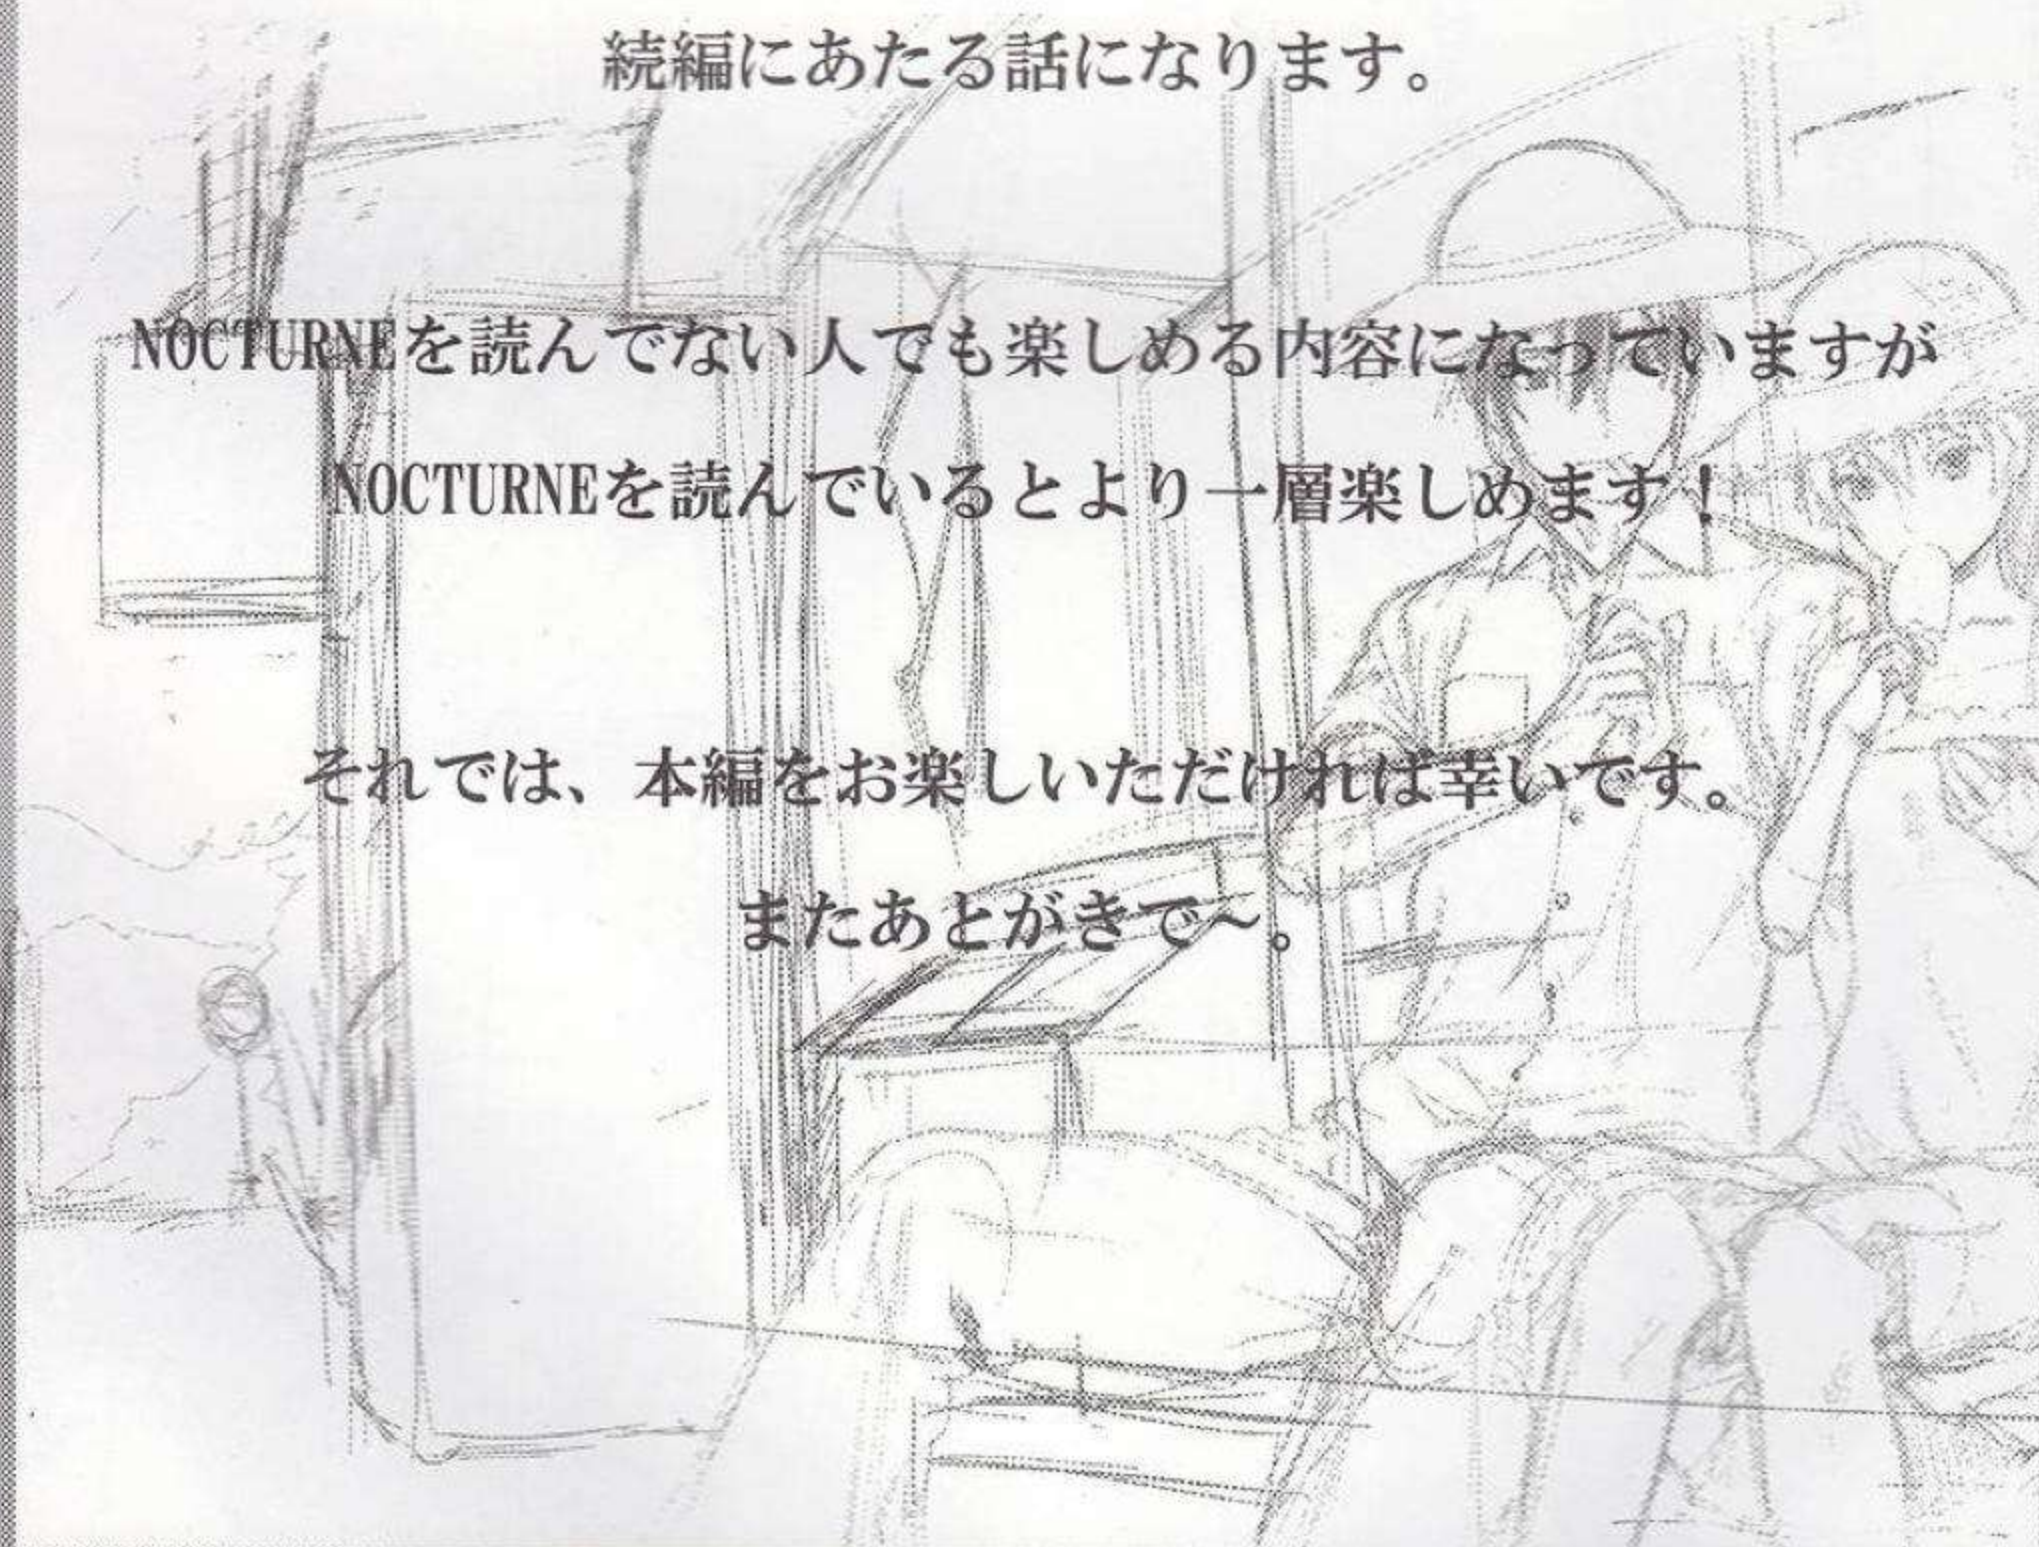 続編にあたる話になります。
NOCTURNEを読んでない人でも楽しめる内容になっていますが
NOCTURNEを読んでいるとより一層楽しめます！
それでは、本編をお楽しいただければ幸いです。
またあとがきで～。